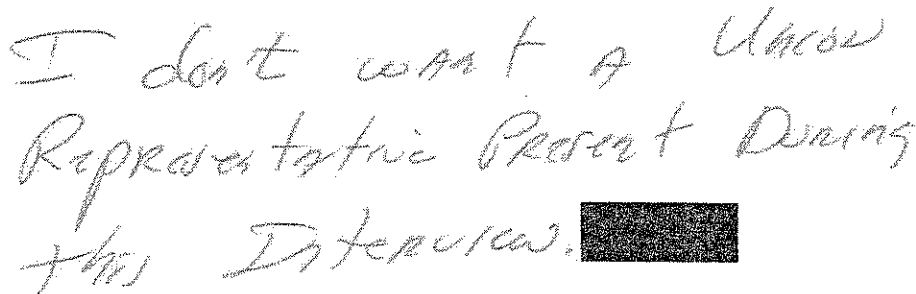 I dont want A Union
Representative Present During
this Interview.